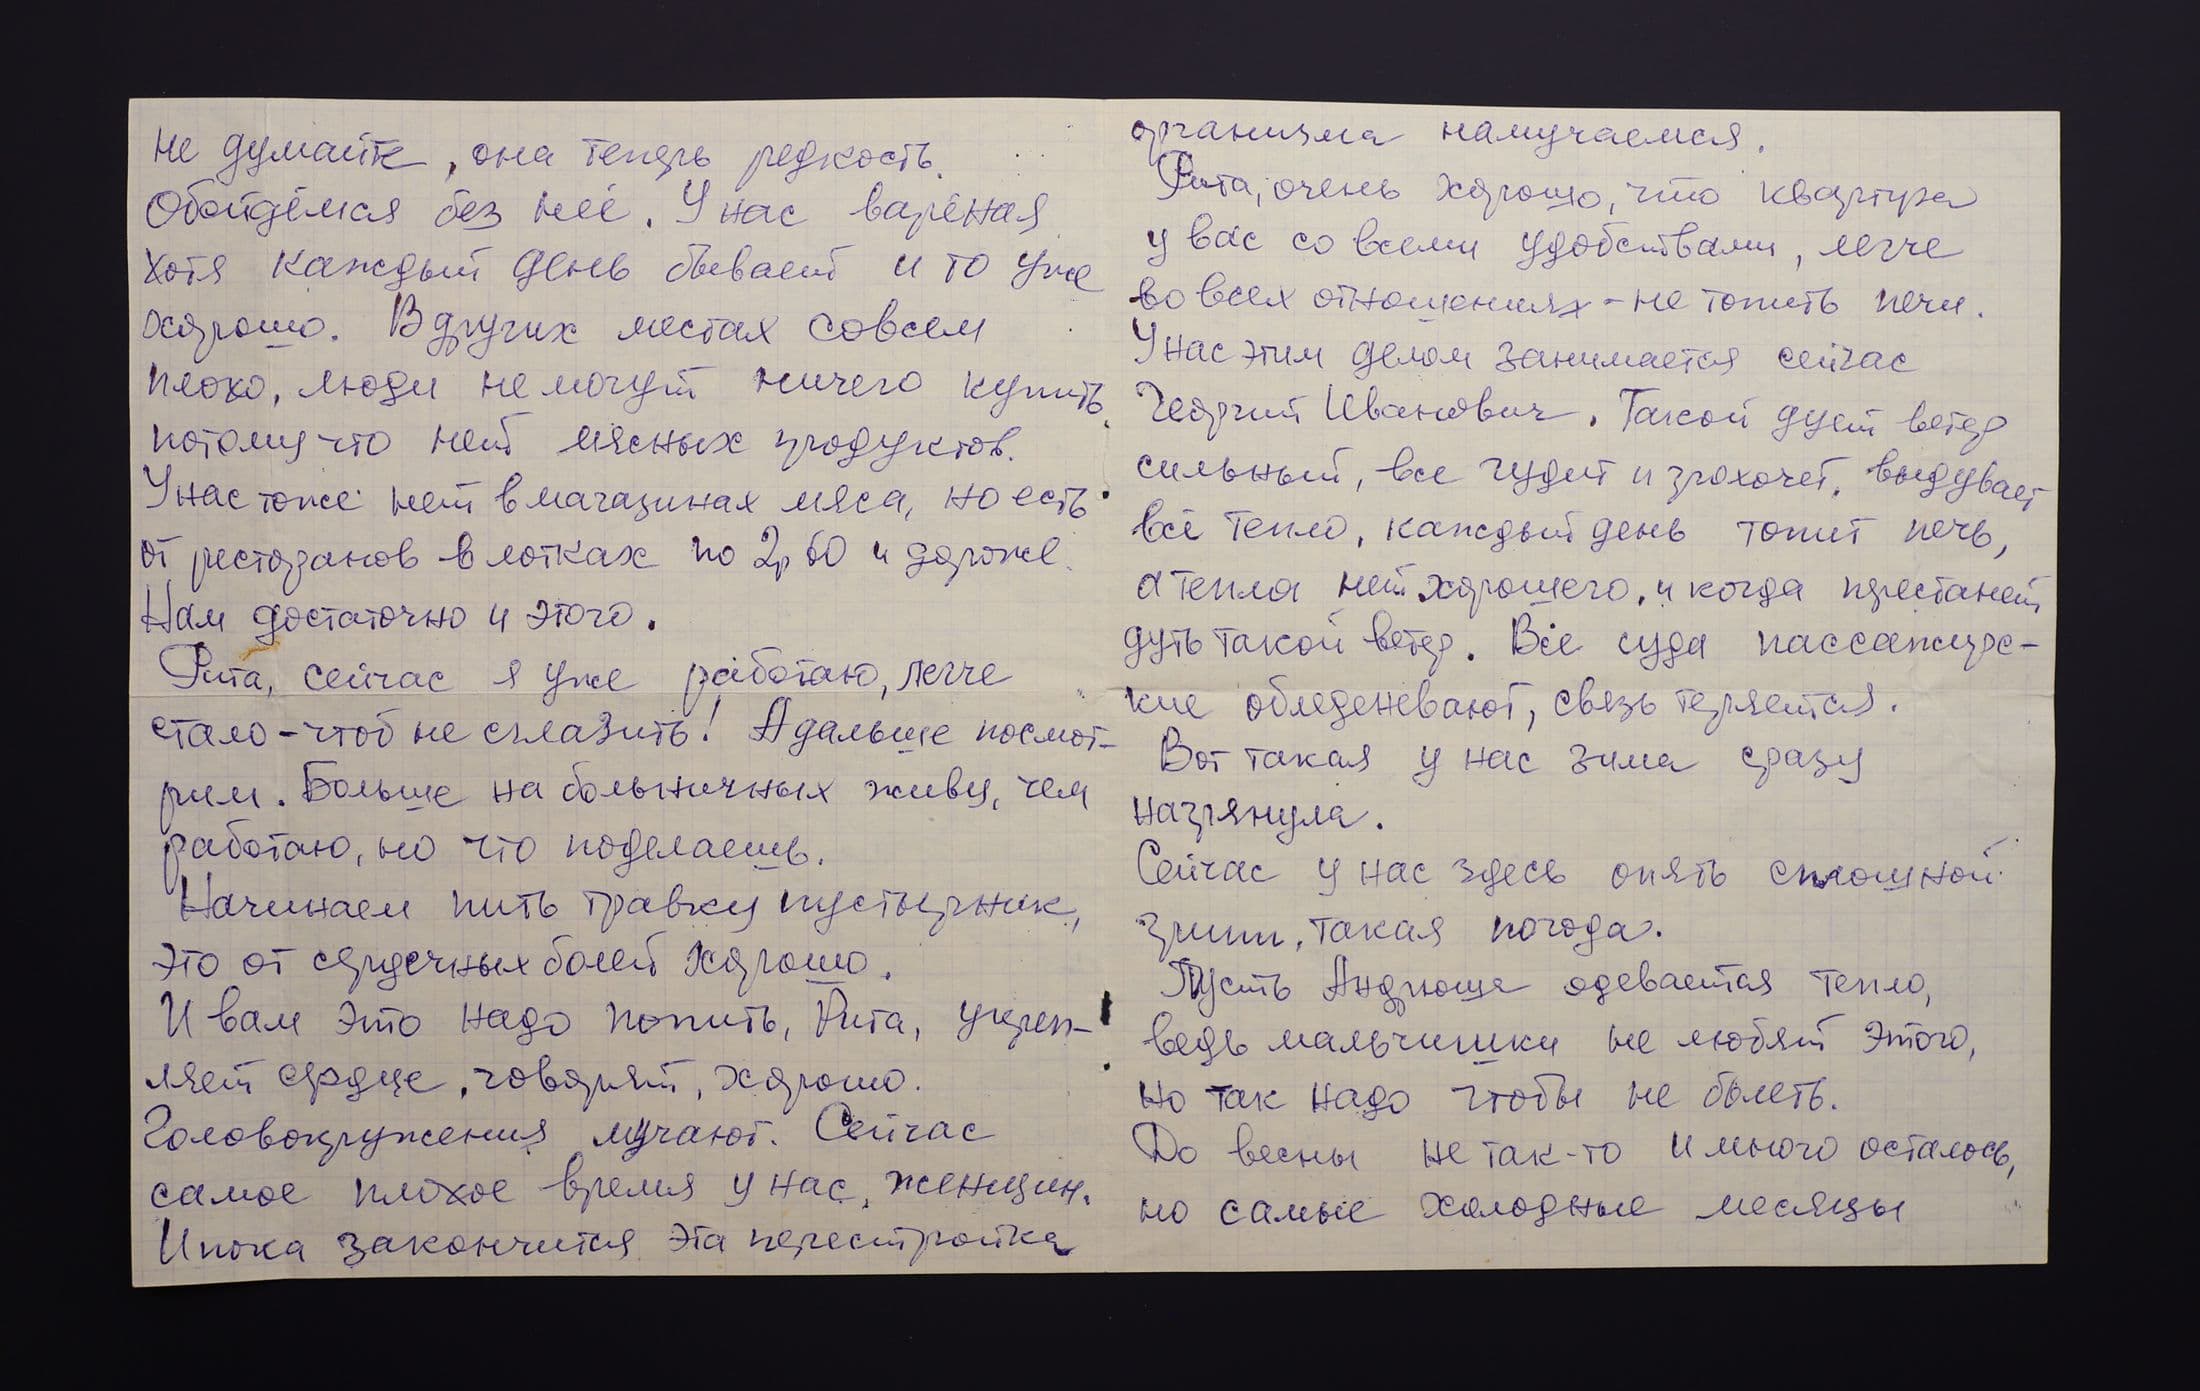 не думайте, она теперь редкость.
Обойдёмся без неё. У нас варёная
хотя каждый день бывает и то уже
хорошо. В других местах совсем
плохо, люди не могут ничего купить,
потому что нет мясных продуктов.
У нас тоже нет в магазинах мяса, но есть
от ресторанов в лотках по 2р 60 и дороже.
Нам достаточно и этого.
Рита, сейчас я уже работаю, легче
стало - чтоб не сглазить! А дальше посмот-
рим. Больше на больничных живу, чем
работаю, но что поделаешь.
Начинаем пить травку пустырник,
это от сердечных болей хорошо.
И вам это надо попить, Рита, укреп-
ляет сердце, говорят, хорошо.
Головокружения мучают. Сейчас
самое плохое время у нас, женщин.
И пока закончится эта перестройка
организма намучаемся.
Рита, очень хорошо, что квартира
у вас со всеми удобствами, легче
во всех отношениях - не топить печи.
У нас этим делом занимается сейчас
Георгий Иванович. Такой дует ветер
сильный, все гудит и грохочет, выдувает
всё тепло, каждый день топит печь,
а тепла нет хорошего, и когда перестанет
дуть такой ветер. Все суда пассажирс-
кие обледеневают, связь теряется.
Вот такая у нас зима сразу
нагрянула.
Сейчас у нас здесь опять сплошной
грипп, такая погода.
Пусть Андрюша одевается тепло,
ведь мальчишки не любят этого,
но так надо чтобы не болеть.
До весны не так-то и много осталось,
но самые холодные месяцы